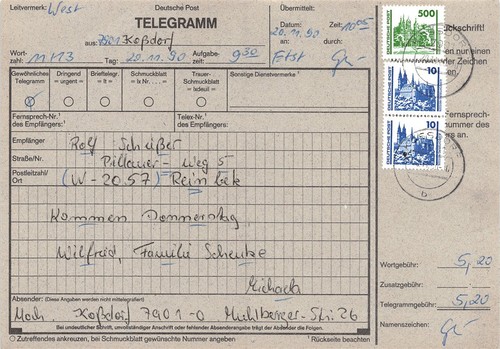 Leitvermerk: West
Deutsche Post
TELEGRAMM
Übermittelt:
Datum: 20.11.90 Zeit: 10
aus: 7901 Koßdorf
Wort-
zahl: 11+13 Tag: 20.11.90 Aufgabe-
zeit: 9 30
Gewöhnliches
Telegramm
Dringend
= urgent =
Brieftelegr.
= lt =
Schmuckblatt
= lx Nr.... =
Trauer-
Schmuckblatt
= lxdeuil =
Sonstige Dienstvermerke ¹
Fernsprech-Nr.¹
des Empfängers:
Telex-Nr.¹
des Empfängers:
Empfänger
Rolf
Straße/Nr.
Pillauer-Weg 5
Postleitzahl/
Ort
(W-2057) Reinbek
Kommen Donnerstag
Wilfried, Familie
Michaela
Absender: (Diese Angaben werden nicht mittelegrafiert)
Koßdorf 7901-0 Mühlberger-Str. 26
Bei undeutlicher Schrift, unvollständiger Anschrift oder fehlender Absenderangabe trägt der Absender die Folgen.
O Zutreffendes ankreuzen, bei Schmuckblatt gewünschte Nummer einsetzen.
¹ Rückseite beachten
500
10
10
DEUTSCHE POST
DEUTSCHE POST
DEUTSCHE POST
ckschrift!
en nur einen
der Zeichen
Fernsprech-
nummer des
rs an.
Wortgebühr: 5,20
Zusatzgebühr:
Telegrammgebühr: 5,20
Namenszeichen: